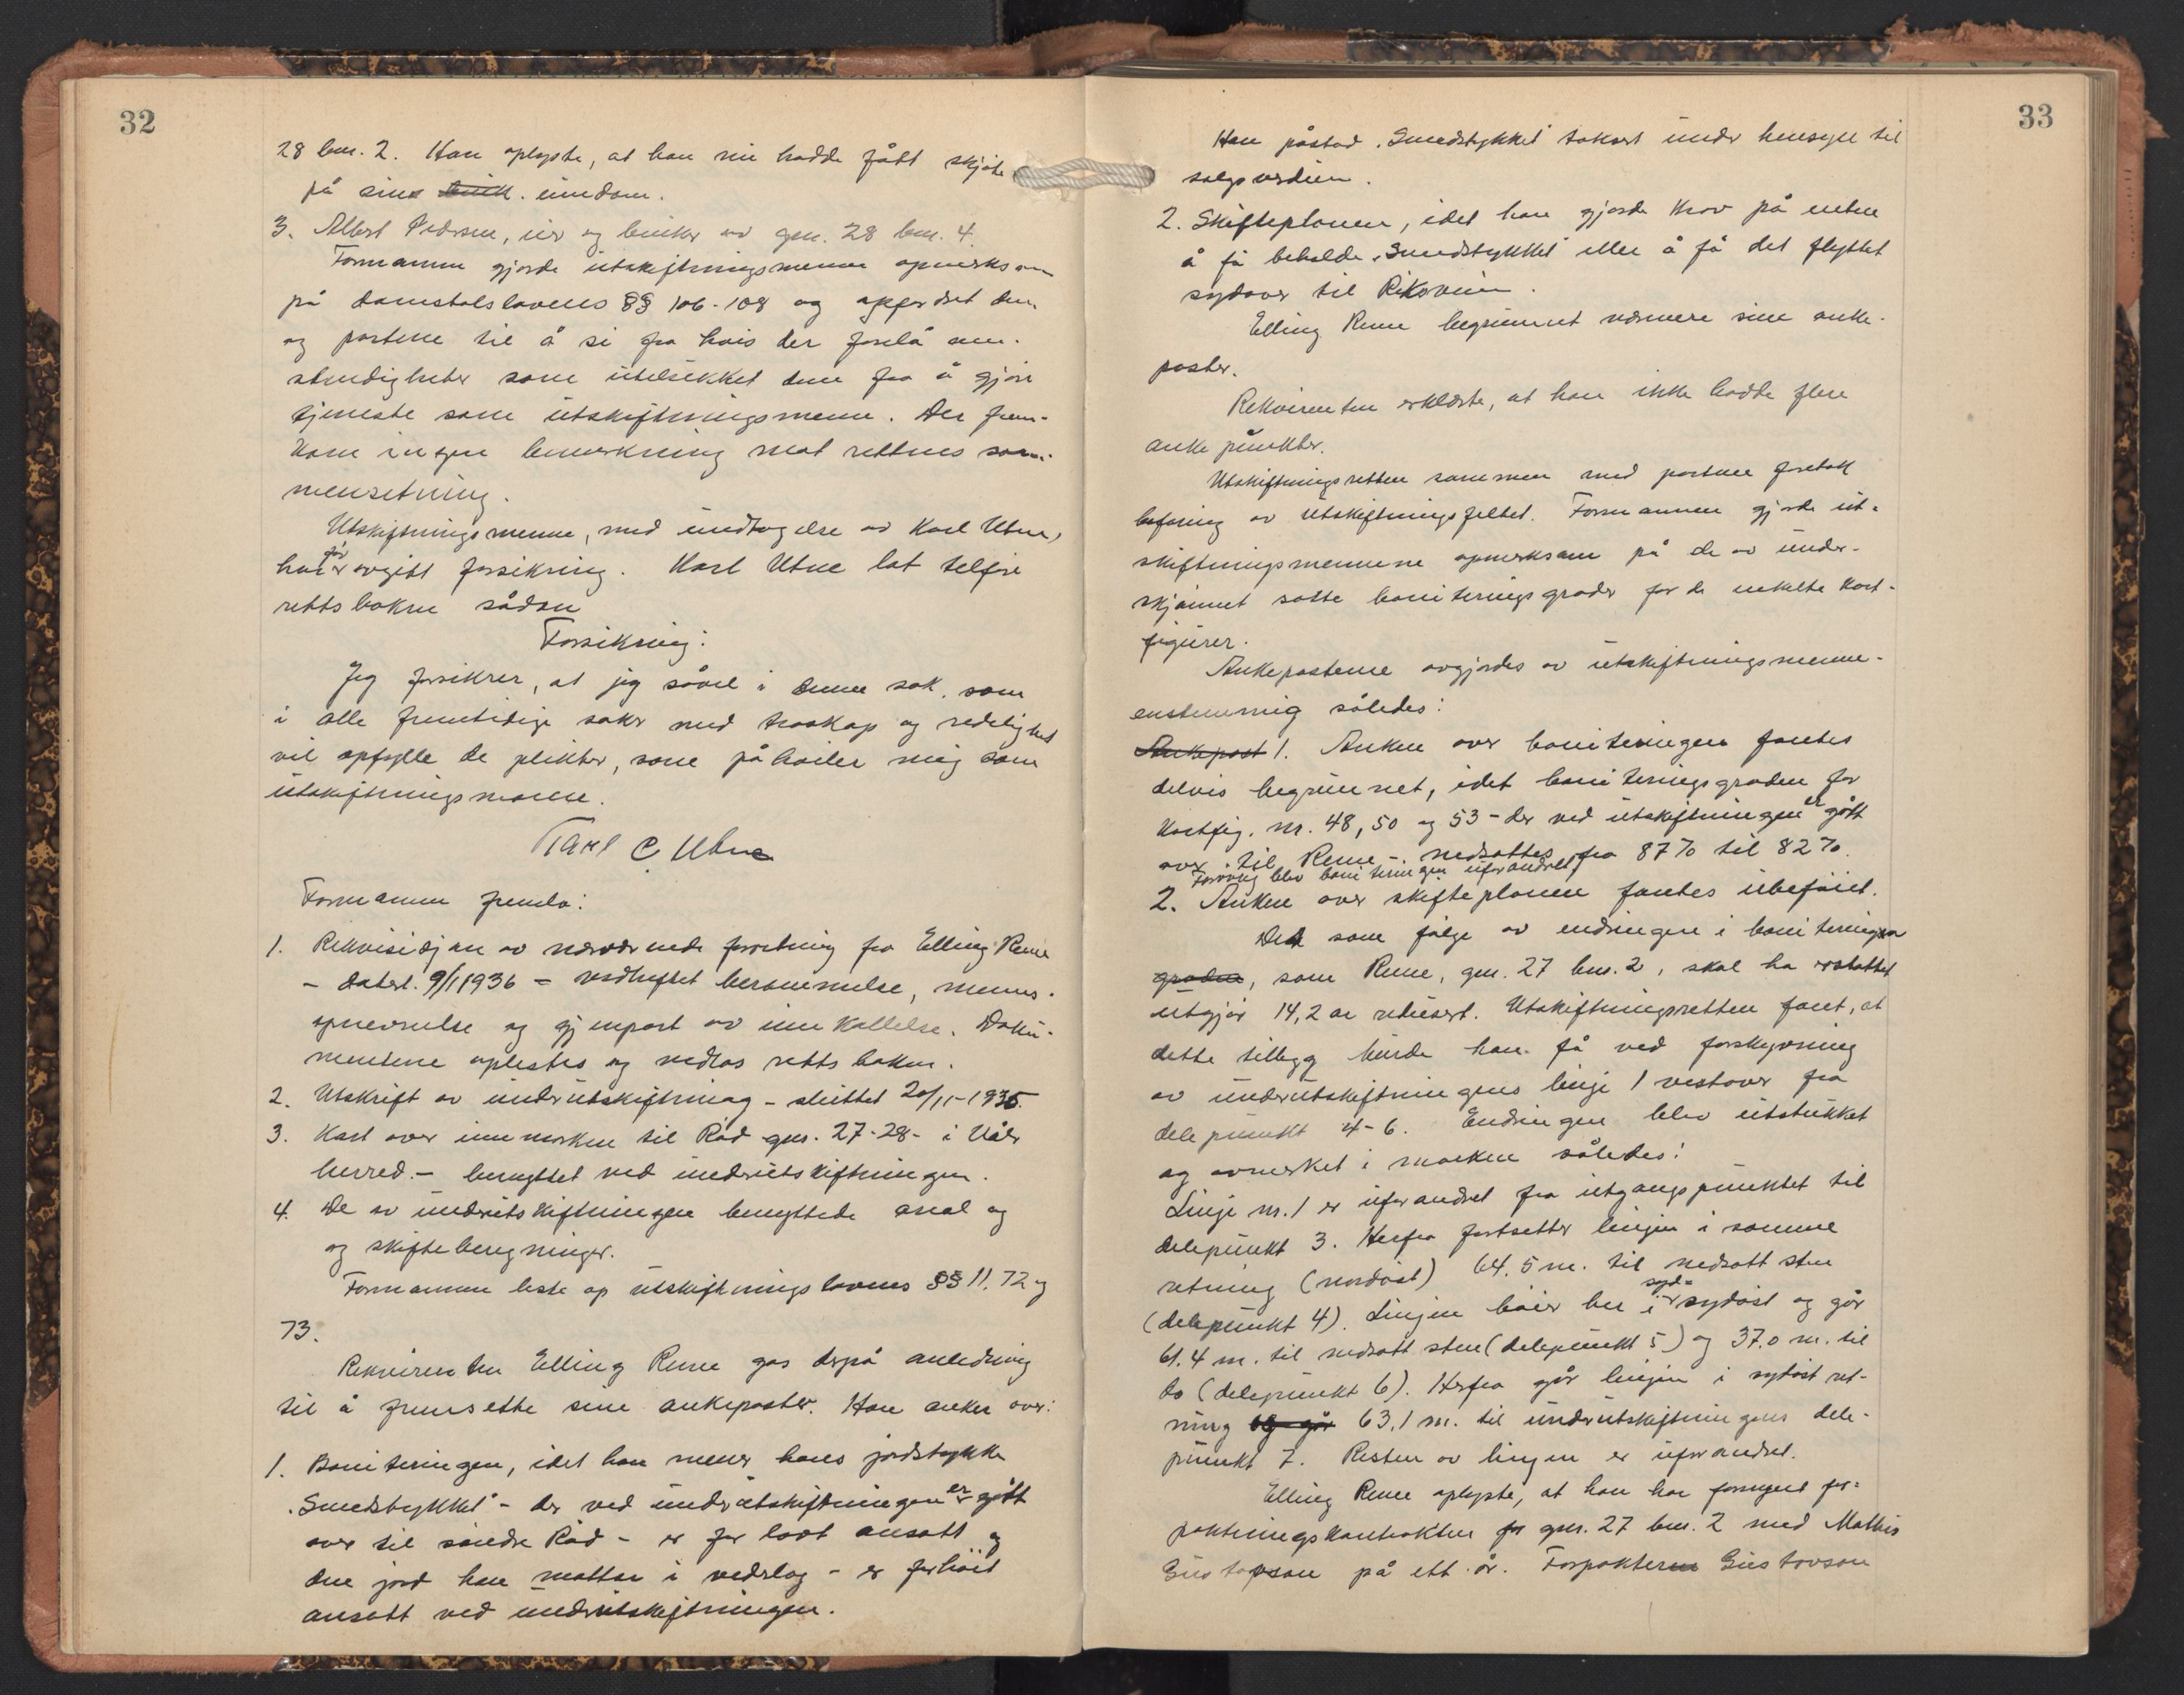 32
28 bnr. 2. Han oplyste, at han nu hadde fått skjöte
på sin eiendom.
3. Albert Pedersen, eier og bruker av gnr. 28 bnr. 4.
Formannen gjorde utskiftningsmennene opmerksom
på domstolslovens §§ 106-108 og opfordret dem
og partene til å si fra hvis der forelå om-
stendigheter som utelukket dem fra å gjöre
tjeneste som utskiftningsmenn. Der frem-
kom ingen bemerkning mot rettens sam-
mensetning.
Utskiftningsmennene, med undtagelse av Karl Utne,
har för avgitt forsikring. Karl Utne lot tilföre
rettsboken sådan
Forsikring:
Jeg forsikrer, at jeg såvel i denne sak, som
i alle fremtidige saker med troskap og redelighet
vil opfylle de plikter, som påhviler mig som
utskiftningsmann.
Karl C Utne
Formannen fremla:
1. Rekvisisjon av nærværende forretning fra Elling Reme
- datert 9/1 1936 - vedheftet berammelse, menns-
opnevnelse og gjenpart av innkallelse. Doku-
mentene oplestes og vedlas rettsboken.
2. Utskrift av underutskiftning - sluttet 20/11-1935.
3. Kart over innmarken til Råd gnr. 27-28- i Våler
herred - benyttet ved underutskiftningen.
4. De av underutskiftningen benyttede areal og
og skifteberegninger.
Formannen leste op utskiftningslovens §§ 11, 72 og
73.
Rekvirenten Elling Reme gas derpå anledning
til å fremsette sine ankeposter. Han anker over:
1. Boniteringen, idet han mener hans jordstykke
"Smedstykket" - der ved underutskiftningen er gått
over til söndre Råd - er for lavt ansatt og
den jord han mottar i vederlag - er for höit
ansatt ved underutskiftningen.
33
Han påstod "Smedstykket" taksert under hensyn til
salgsverdien.
2. Skifteplanen, idet han gjorde krav på enten
å få beholde "Smedstykket" eller å få det flyttet
sydover til Riksveien.
Elling Reme begrunnet nærmere sine anke-
poster.
Rekvirenten erklærte, at han ikke hadde flere
ankepunkter.
Utskiftningsretten sammen med partene foretok
befaring av utskiftningsfeltet. Formannen gjorde ut-
skiftningsmennene opmerksom på de av under-
skjönnet satte boniteringsgrader for de enkelte kart-
figurer.
Ankepostene avgjordes av utskiftningsmennene
enstemmig således:
Ankepost 1. Anken over boniteringen fantes
delvis begrunnet, idet boniteringsgraden for
kartfig. nr. 48, 50 og 53 - der ved utskiftningen er gått
over til Reme - nedsattes fra 87% til 82%.
Forövrig blev boniteringen uforandret
2. Anken over skifteplanen fantes ubeföiet.
Det som fölge av endringen i boniteringen
graden, som Reme, gnr. 27 bnr. 2, skal ha erstattet
utgjör 14,2 ar redusert. Utskiftningsretten fant, at
dette tillegg burde han få ved forskyvning
av underutskiftningens linje 1 vestover fra
delepunkt 4-6. Endringen blev utstukket
og avmerket i marken således:
Linje nr. 1 er uforandret fra utgangspunktet til
delepunkt 3. Herfra fortsetter linjen i samme
retning (nordöst) 64,5 m. til nedsatt sten
(delepunkt 4). Linjen böier her i syd-sydöst og går
61.4 m. til nedsatt sten (delepunkt 5) og 37.0 m. til
do (delepunkt 6). Herfra går linjen i sydöst ret-
ning og går 63,1 m. til underutskiftningens dele-
punkt 7. Resten av linjen er uforandret.
Elling Reme oplyste, at han har fornyet for-
paktningskontrakten for gnr. 27 bnr. 2 med Mathis
Gustavson på ett år. Forpakteren Gustavson